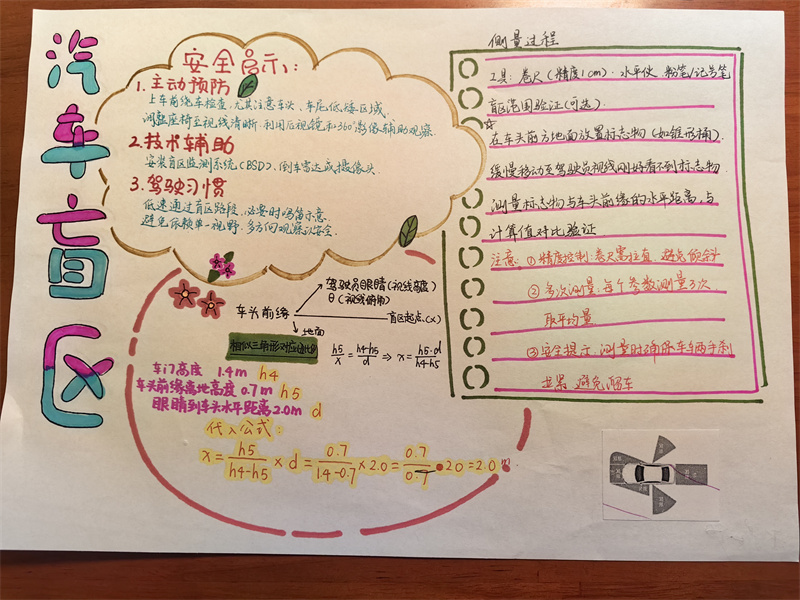 汽车盲区
安全启示:
1.主动预防
上车前绕车检查,尤其注意车头、车尾低矮区域.
调整座椅至视线清晰.利用后视镜和360°影像辅助观察.
2.技术辅助
安装盲区监测系统(BSD)、倒车雷达或摄像头.
3.驾驶习惯
低速通过盲区路段,必要时鸣笛示意.
避免依赖单一视野.多方向观察以安全.
驾驶员眼睛(视线高度)
θ(视线俯角)
车头前缘
盲区起点(x)
地面
相似三角形对应边比
h5/x = h4-h5/d ⇒ x = h5·d/h4-h5
车门高度 1.4m h4
车头前缘离地高度 0.7m h5
眼睛到车头水平距离2.0m d
代入公式:
x = h5/h4-h5 × d = 0.7/1.4-0.7 × 2.0 = 0.7/0.7 • 2.0 = 2.0
测量过程
工具:卷尺(精度1cm)·水平仪 粉笔/记号笔
盲区范围验证(可选)
在车头前方地面放置标志物(如锥形桶)
缓慢移动至驾驶员视线刚好看不到标志物
测量标志物与车头前缘的水平距离,与
计算值对比验证
注意:①精度控制:卷尺需拉直 避免倾斜
②多次测量:每个参数测量3次
取平均量
③安全提示:测量时确保车辆手刹
拉紧 避免溜车